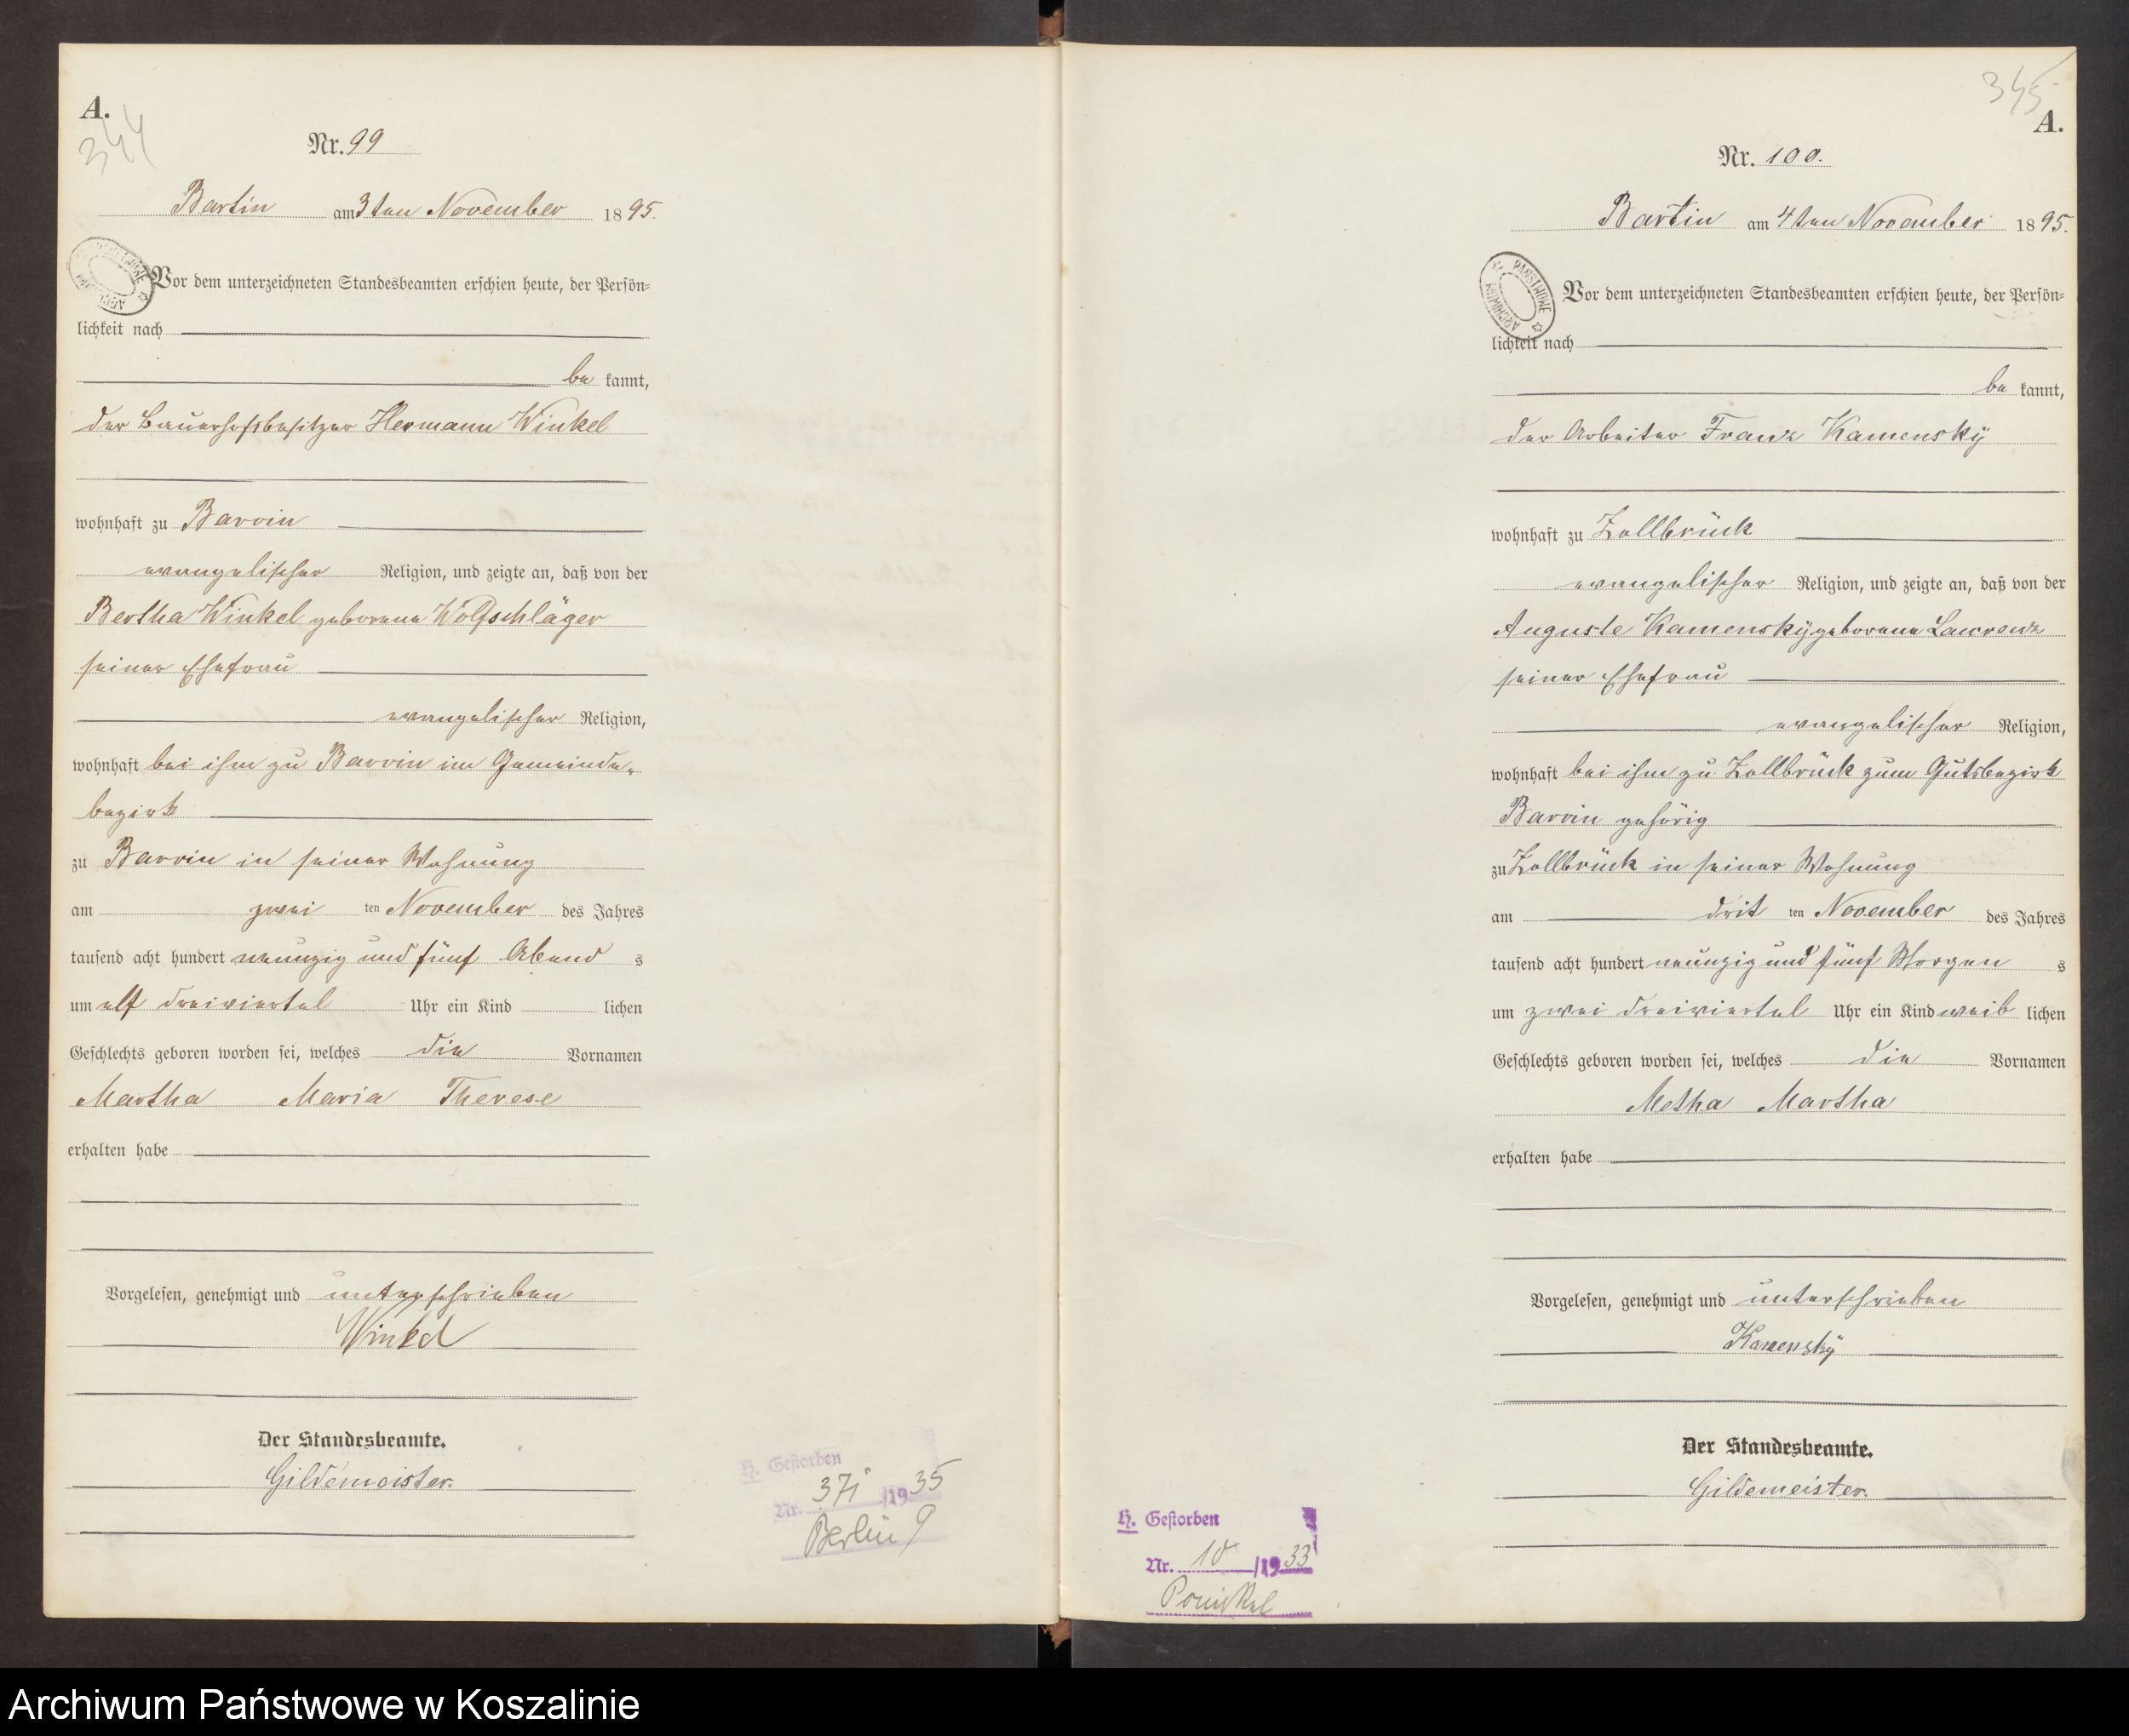 A.
344
Nr. 99
Bartin am 3ten November 1895.
Vor dem unterzeichneten Standesbeamten erschien heute, der Persön=
lichkeit nach
be kannt,
der Bauerhofsbesitzer Hermann Winkel
wohnhaft zu Barvin
evangelischer Religion, und zeigte an, daß von der
Bertha Winkel geborene Wolfschläger
seiner Ehefrau
evangelischer Religion,
wohnhaft bei ihm zu Barvin im Gemeinde-
bezirk
zu Barvin in seiner Wohnung
am zwei ten November des Jahres
tausend acht hundert neunzig und fünf Abend s
um elf dreiviertel Uhr ein Kind lichen
Geschlechts geboren worden sei, welches die Vornamen
Martha Maria Therese
erhalten habe
Vorgelesen, genehmigt und unterschrieben
Winkel
Der Standesbeamte.
Gildemeister.
H. Gestorben
Nr. 371 /1935
Berlin 9
345
A.
Nr. 100.
Bartin am 4ten November 1895.
ARCHIWUM PAŃSTWOWE
Vor dem unterzeichneten Standesbeamten erschien heute, der Persön=
lichkeit nach
be kannt,
der Arbeiter Franz Kamenský
wohnhaft zu Zollbrück
evangelischer Religion, und zeigte an, daß von der
Auguste Kamenský geborene Lawrenz
seiner Ehefrau
evangelischer Religion,
wohnhaft bei ihm zu Zollbrück zum Gutsbezirk
Barvin gehörig
zu Zollbrück in seiner Wohnung
am drit ten November des Jahres
tausend acht hundert neunzig und fünf Morgen s
um zwei dreiviertel Uhr ein Kind weib lichen
Geschlechts geboren worden sei, welches die Vornamen
Metha Martha
erhalten habe
Vorgelesen, genehmigt und unterschrieben
Kamenský
Der Standesbeamte.
Gildemeister.
H. Gestorben
Nr. 10 /1933
Archiwum Państwowe w Koszalinie